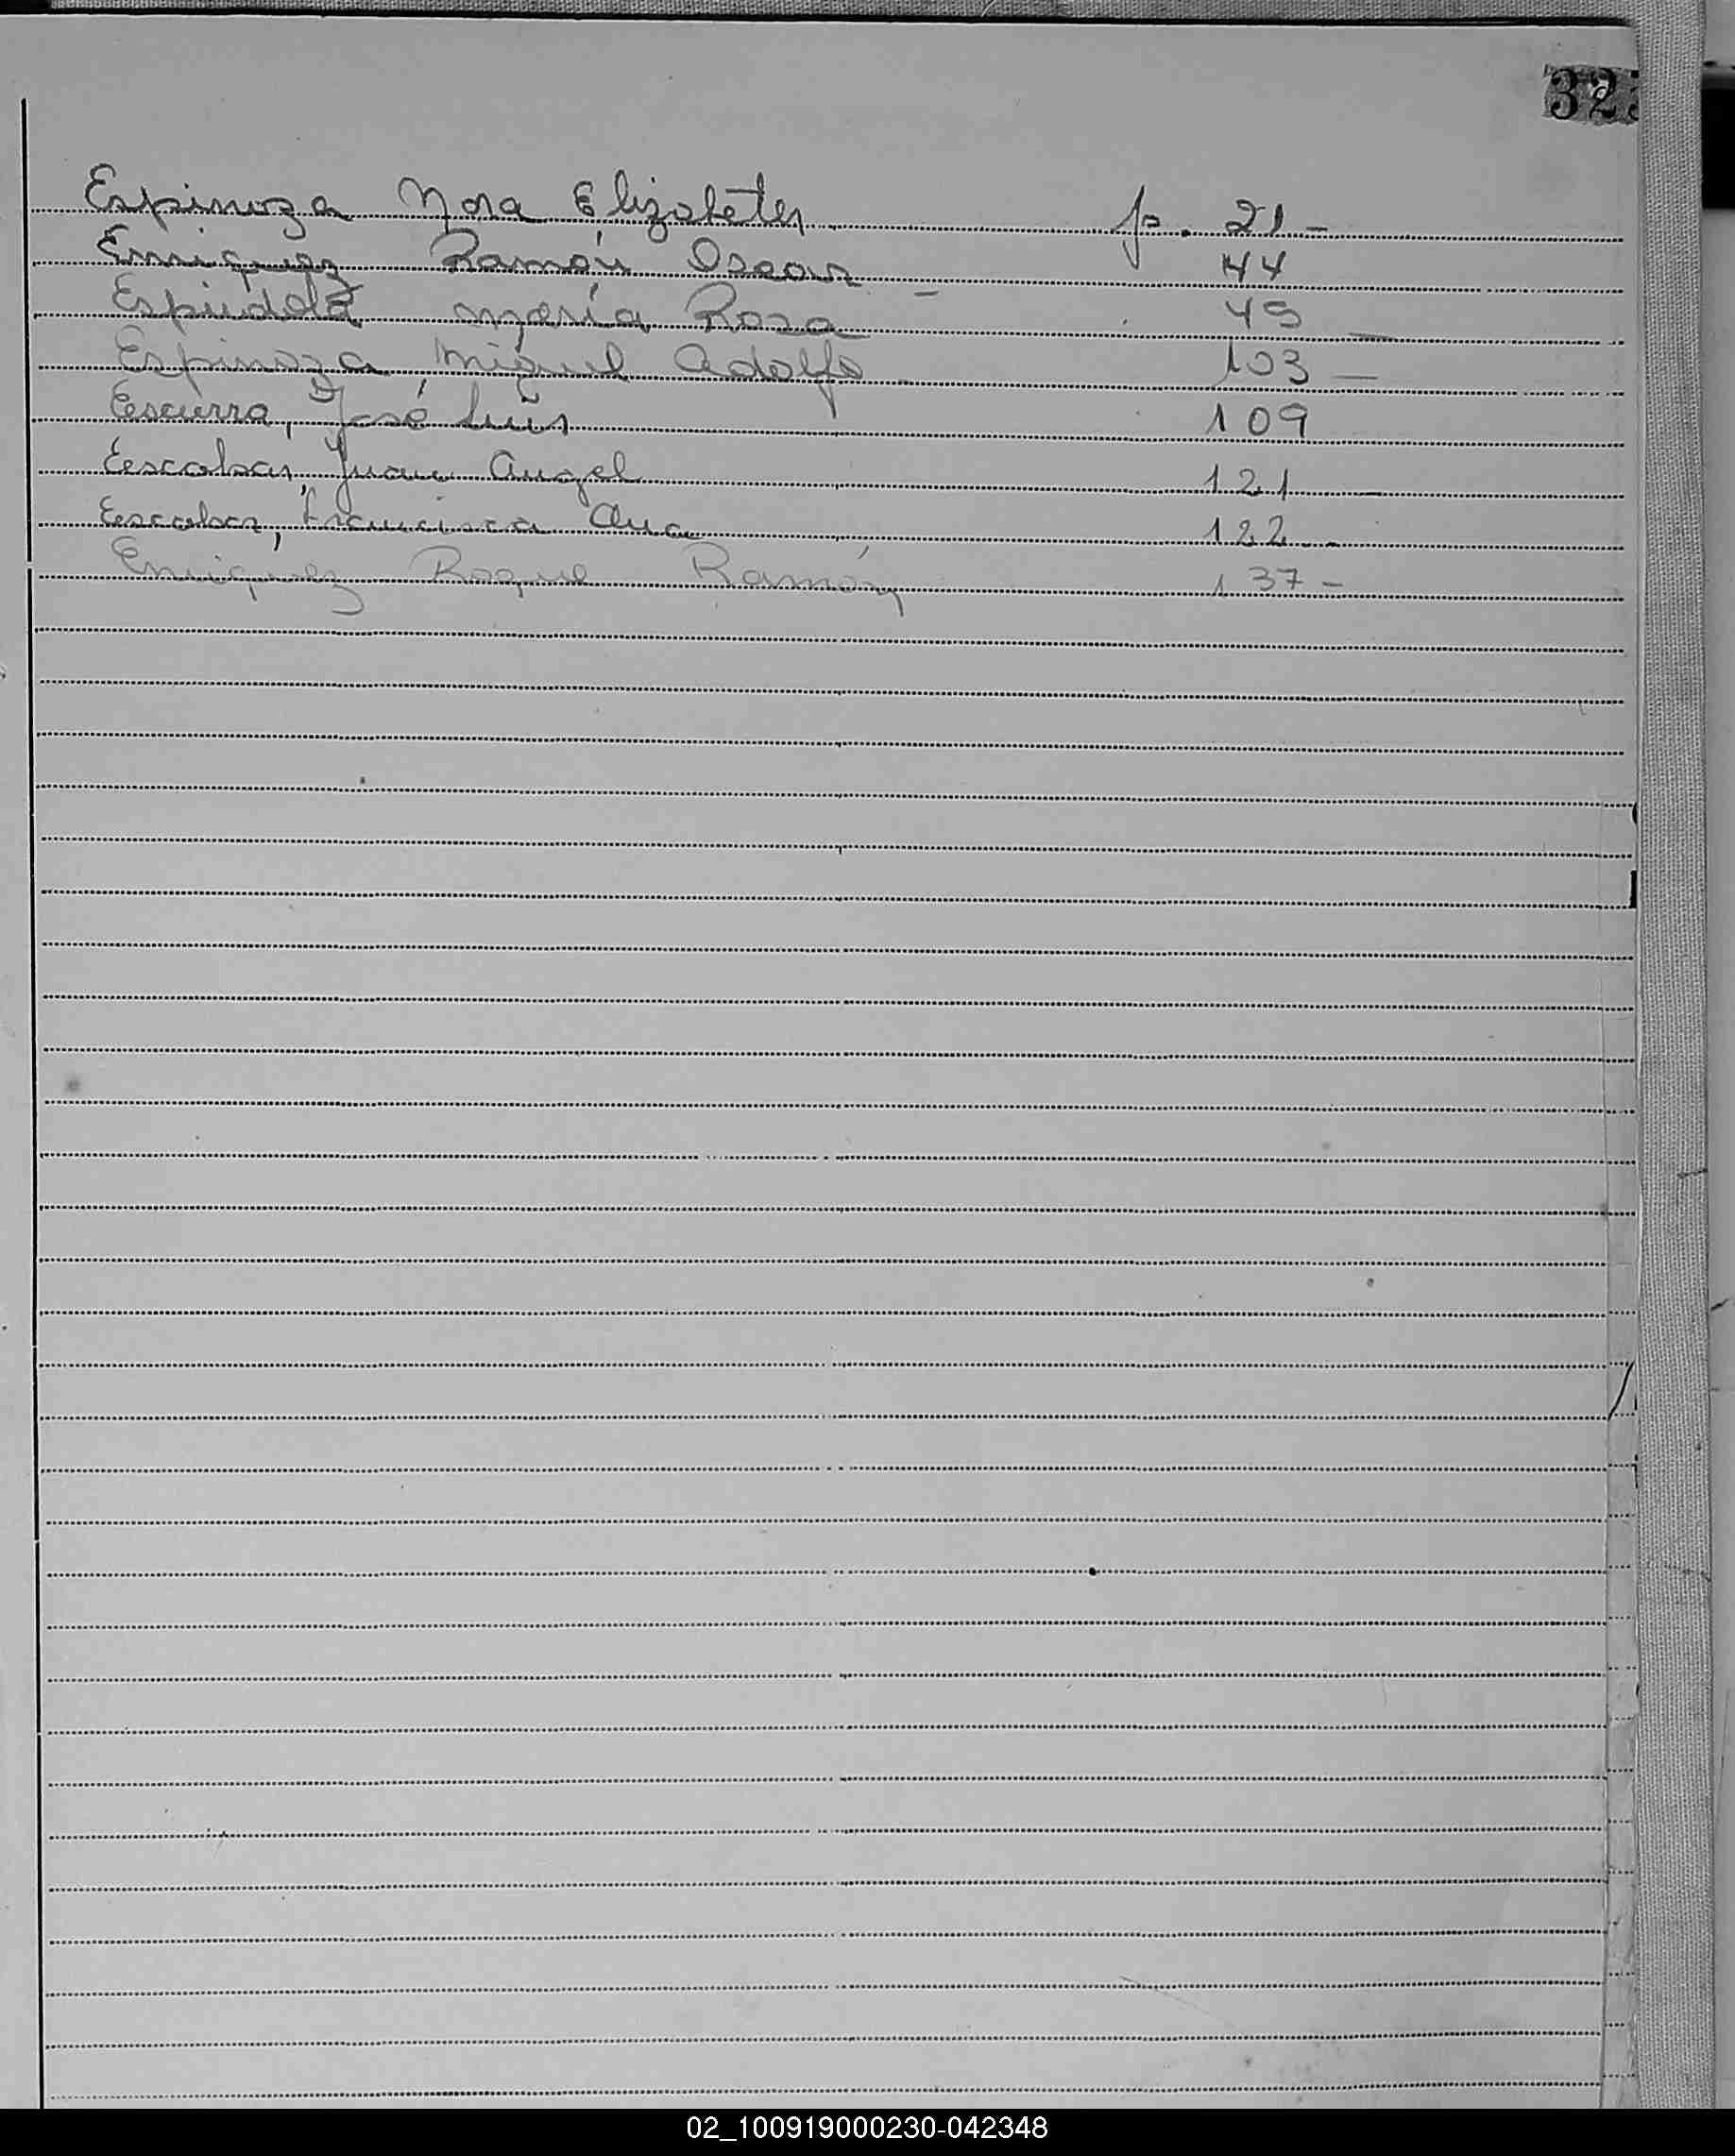 32
Espinoza Nora Elizabeth p. 21 -
Enriquez Ramón Oscar - 44
Espindola María Rosa 45 —
Espinoza Miguel Adolfo 103 —
Escurra, José Luis 109
Escobar, Juan Angel 121 —
Escobar, Francisca Ana 122 -
Enriquez Roque Ramón 137 -
02_100919000230-042348